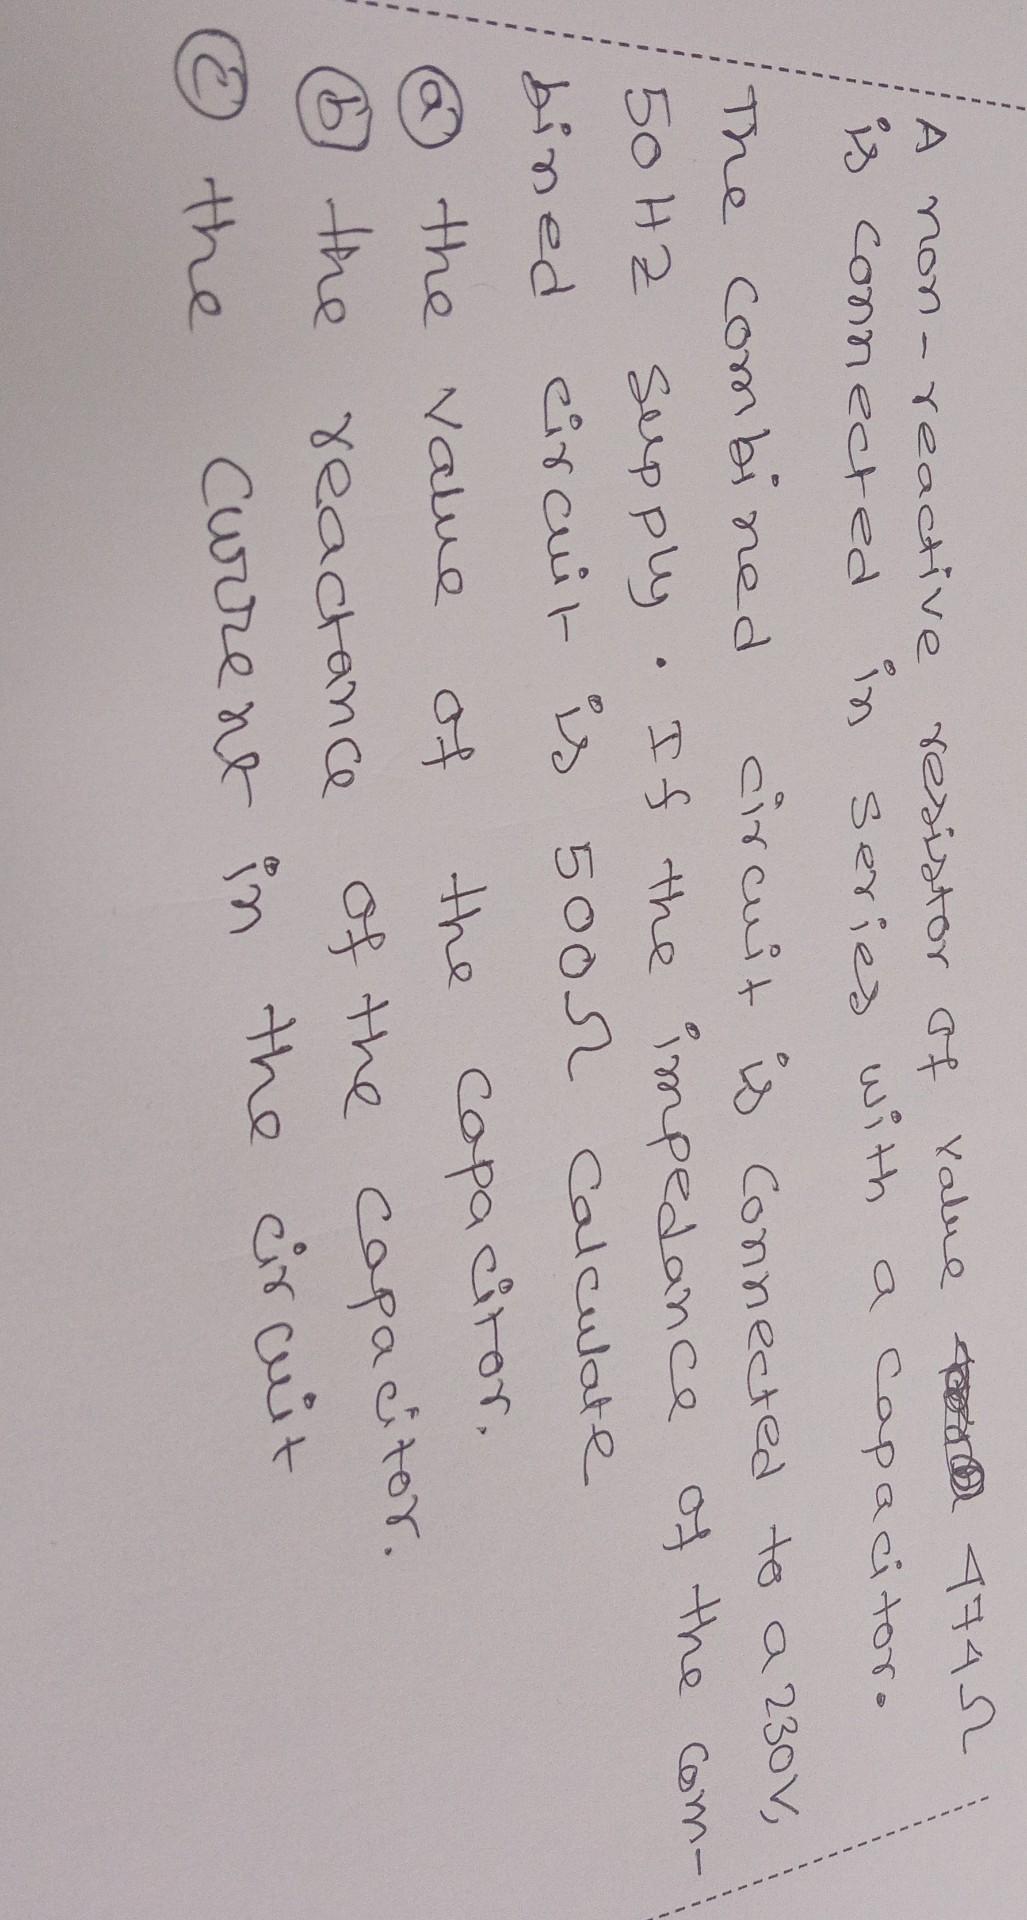 A non-reactive resistor of value 474Ω
is connected in series with a capacitor.
The combined circuit is connected to a 230V,
50HZ supply. If the impedance of the com-
bined circuit is 500Ω calculate
ⓐ the value of the capacitor.
ⓑ the reactance of the capacitor.
ⓒ the current in the circuit